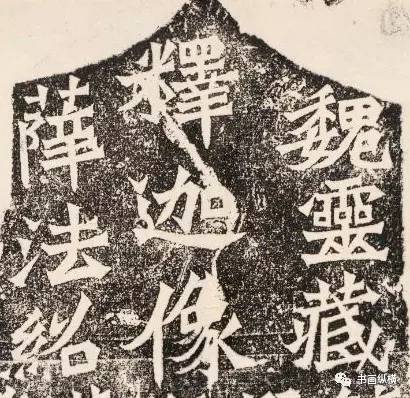 魏靈藏
釋迦像
薛法紹
书画纵横